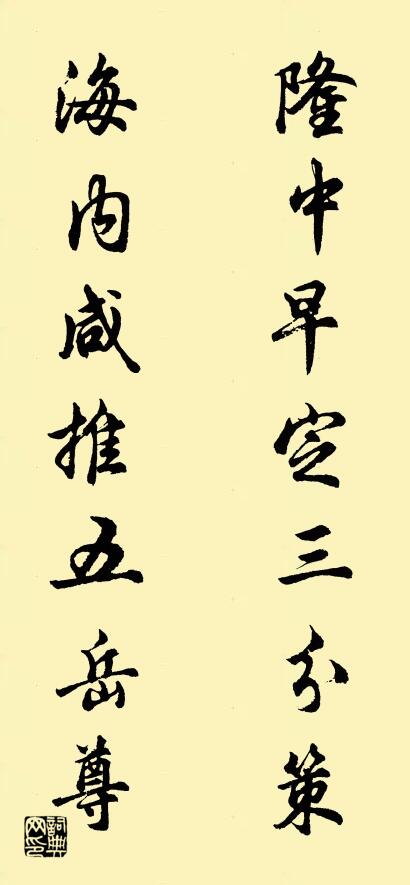 隆中早定三分策
海内咸推五岳尊
詞典网印